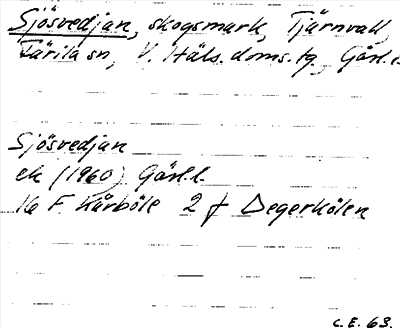 Sjösvedjan, skogsmark, Tjärnvall,
Färila sn, V. Häls. doms. tg, Gävl.l.
Sjösvedjan
ek (1960) Gävl.l.
16 F Kårböle 2 f Degerkölen
C.E. 63.